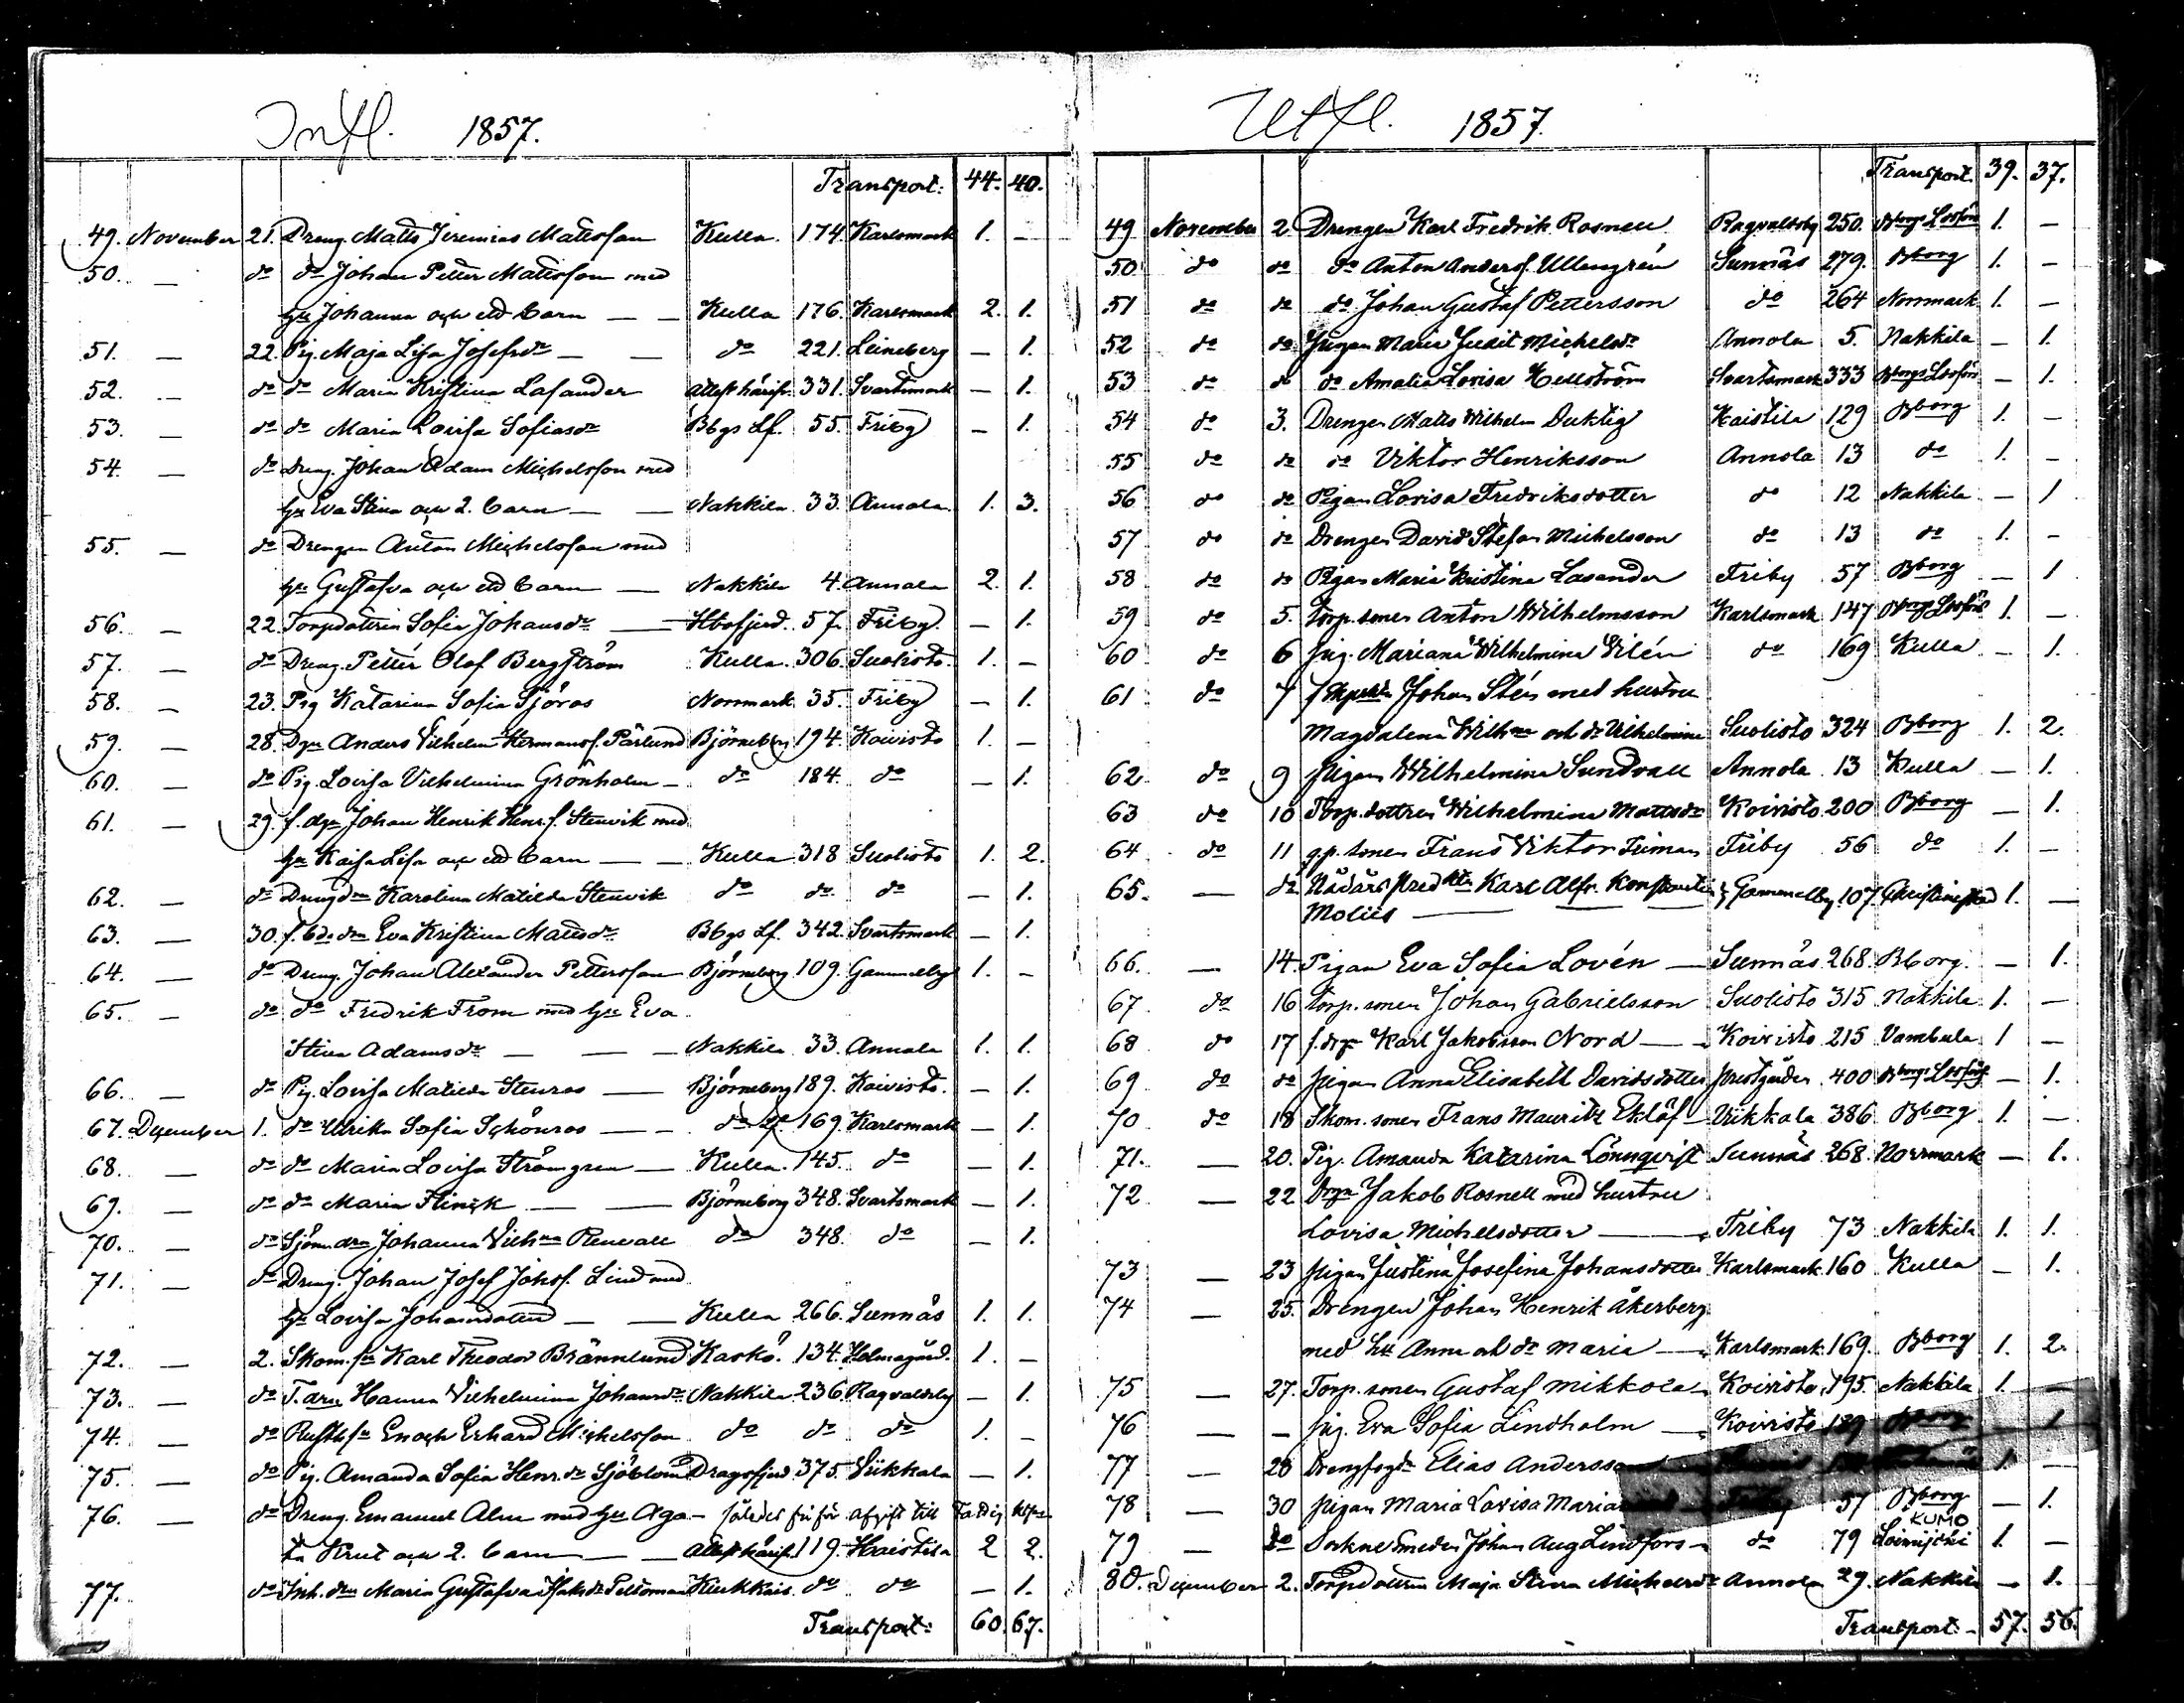 Infl. 1857.
Transport: 44. 40.
49. November 21. Dreng. Matts Jeremias Mattsson Kulla. 174. Karlsmark 1. —
50. — do do Johan Petter Mattsson med
hu Johanna och ett barn — — Kulla 176. Karlsmark 2. 1.
51. — 22. Pig. Maja Lisa Josefsdr — — do 221. Leineberg — 1.
52. — do do Maria Kristina Lasander 331. Svartsmark — 1.
53. — do do Maria Lovisa Sofiasdr Bbgs Lf. 55. Friby — 1.
54. — do Dreng. Johan Adam Michelsson med
hu Eva Stina och 2. barn — — Nakkila 33. Annola 1. 3.
55. — do Drengen Anton Michelsson med
hu Gustafva och ett barn — Nakkila 4. Annola 2. 1.
56. — 22. Torpdottren Sofia Johansdr — Hbofjerd. 57. Friby. — 1.
57. — do Dreng. Petter Olof Bergström Kulla. 306. Suolisto. 1. —
58. — 23. Pig Katarina Sofia Sjöros Norrmark 35. Friby — 1.
59. — 28. Dgn Anders Vilhelm Hermansf. Pärlund Björneborg 194. Koivisto 1. —
60. — do Pig. Lovisa Vilhelmina Grönholm — do 184. do — 1.
61. — 29. f. dgn Johan Henrik Henr.f. Stenvik med
hu Kaisa Lisa och ett barn — — Kulla 318 Suolisto 1. 2.
62. — do Drengdrn Karolina Matilda Stenvik do do. do — 1.
63. — 30. Eva Kristina Mattsdr Bbgs Lf. 342. Svartsmark — 1.
64. — do Dreng. Johan Alexander Pettersson Björneborg 109. Gammelby 1. —
65. — do do Fredrik From med hu Eva
Stina Adamsdr — — — Nakkila 33. Annola 1. 1.
66. — do Pig. Lovisa Matilda Stenros — Björneborg 189. Koivisto. — 1.
67. December 1. do Ulrika Sofia Schönros — — do 169. Karlsmark — 1.
68. — do do Maria Lovisa Strömgren — Kulla. 145. do — 1.
69. — do do Maria Flinck — — Björneborg 348. Svartsmark — 1.
70. — do Sjöm.drn Johanna Vilhna Renvall do 348. do — 1.
71. — do Dreng. Johan Josef Johsf. Lind med
hu Lovisa Johansdotter — — Kulla 266. Sunnäs 1. 1.
72. — 2. Skom.sn Karl Theodor Brännlund Kaskö. 134. Holmagård. 1. —
73. — do T.drn Hanna Vilhelmina Johansdr Nakkila 236. Ragvaldsby — 1.
74. — do Rusth.sn Enoch Erhard Michelsson do do do 1. —
75. — do Pig. Amanda Sofia Henr.dr Sjöblom Dragsfjerd 375. Viikkala — 1.
76. — do Dreng. Emanuel Alm med hu Aga— afgift till
ta Krut och 2. barn — — 119. Haistila 2 2.
77. — do Inh. drn Maria Gustafva Jaksdr Peltoman do do — 1.
Transport: 60. 67.
Utfl. 1857.
Transport. 39. 37.
49 November 2. Drengen Karl Fredrik Rosnell Ragvaltsby 250. Bborgs Lovförs 1. —
50 do do do Anton Andersf. Ullengrén Sunnäs 279. Bborg 1. —
51 do do do Johan Gustaf Pettersson do 264 Norrmark 1. —
52 do do Pigan Maria Judit Michelsdr Annola 5. Nakkila — 1.
53 do do do Amalia Lovisa Hellström Svartsmark 333 Bborgs Lovförs — 1.
54 do 3. Drengen Matts Wilhelm Duktig Haistila 129 Bborg 1. —
55 do do do Viktor Henriksson Annola 13 do 1. —
56 do do Pigan Lovisa Fredriksdotter do 12 Nakkila — 1
57 do do Drengen David Stefan Michelsson do 13 do 1. —
58 do do Pigan Maria Kristina Lasander Friby 57 Bborg — 1
59 do 5. Torp.sonen Anton Wilhelmsson Karlsmark 147 Bborgs Lovförs 1. —
60 do 6 Pig. Mariana Wilhelmina Vilén do 169 Kulla — 1.
61 do 7 Johan Stén med hustru
Magdalena Wilhna och dr Vilhelmina Suolisto 324 Bborg 1. 2.
62 do 9 Pigan Wilhelmina Sundvall Annola 13 Kulla — 1.
63 do 10 Torp.dottren Wilhelmina Mattsdr Koivisto 200 Bborg — 1.
64 do 11 g.p. sonen Frans Viktor Friby 56 do 1. —
65. — do Karl Alfr. Konstantin Gammelby 107 Christinestad 1. —
Moliis — — —
66. — 14. Pigan Eva Sofia Lovén — Sunnäs 268. Bborg. — 1.
67 do 16 torp. sonen Johan Gabrielsson Suolisto 315 Nakkila 1. —
68 do 17 f.drgn Karl Jakobsson Nord — Koivisto 215 Vambula 1 —
69 do do Pigan Anna Elisabett Davidsdotter Prestgården 400 Bborgs Lovförs — 1.
70 do 18 Skom. sonen Frans Mauritz Eklöf — Viikkala 386 Bborg 1. —
71. — 20. Pig. Amanda Katarina Lönnqvist Sunnäs 268. Norrmark — 1.
72 — 22 Drgn Jakob Rosnell med hustru
Lovisa Michelsdotter — Friby 73 Nakkila 1. 1.
73 — 23 Pigan Justina Josefina Johansdotter Karlsmark 160 Kulla — 1.
74 — 25. Drengen Johan Henrik Åkerberg
med hu Anna och dr Maria — Karlsmark 169. Bborg 1. 2.
75 — 27. Torp. sonen Gustaf Mikkola Koivisto 195. Nakkila 1. —
76 — — Pig. Eva Sofia Lindholm — Koivisto 189 Bborg — 1
77 — 28 Drengfogden Elias Andersson 1. —
78 — 30 Pigan Maria Lovisa Friby 57 Bborg — 1.
KUMO
79 — do Sockne Smeden Johan Aug Lindfors — do 79 Loimijoki 1. —
80. December 2. Torpdottren Maja Stina Michelsdr Annola 29. Nakkila — 1.
Transport: — 57. 56.